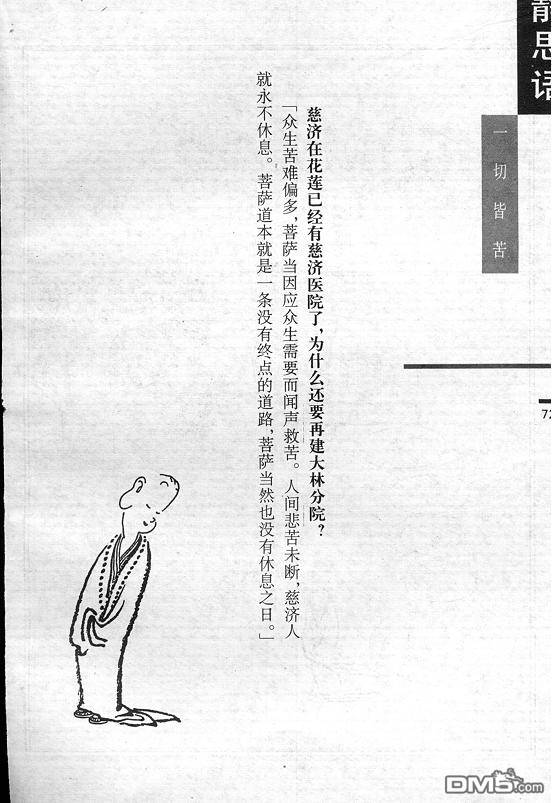 静思语
一切皆苦
慈济在花莲已经有慈济医院了，为什么还要再建大林分院？
「众生苦难偏多，菩萨当因应众生需要而闻声救苦。人间悲苦未断，慈济人
就永不休息。菩萨道本就是一条没有终点的道路，菩萨当然也没有休息之日。」
DM5.com